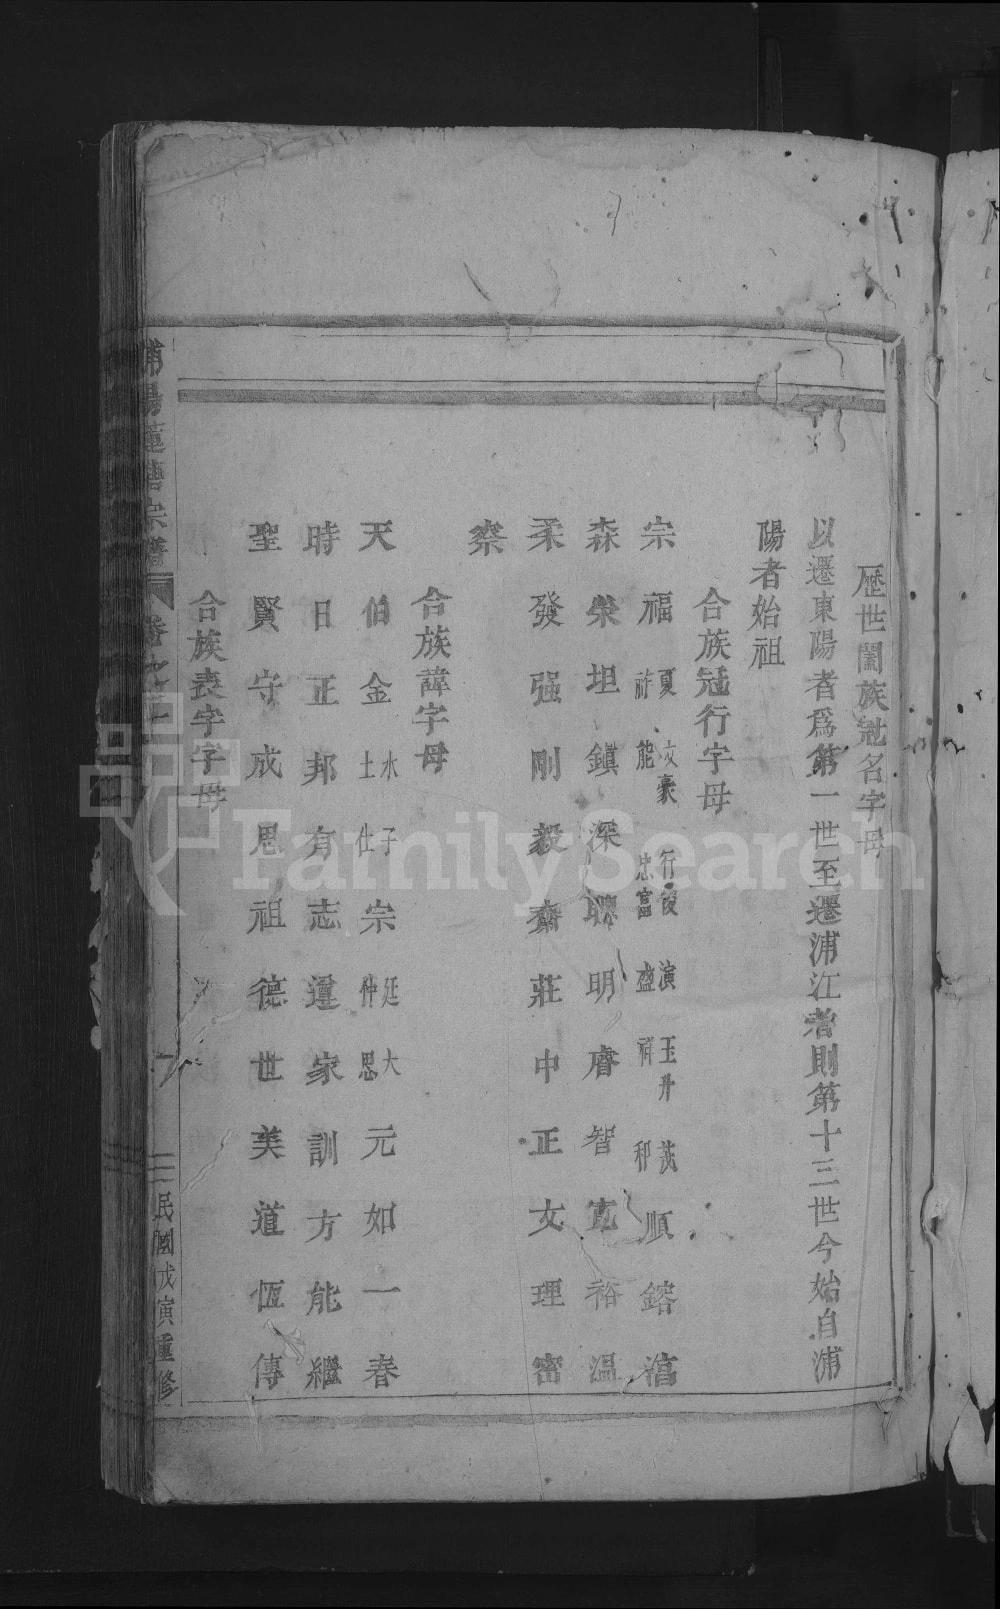 歷世闔族冠名字母
以遷東陽者爲第一世至遷浦江者則第十三世今始自浦
陽者始祖
合族冠行字母
宗福夏祚文豪能行俊忠富演盛玉升祥茂和順鎔
森榮坦鎮深聰明睿智寬裕溫
柔發强剛毅齋莊中正文理密
察
合族諱字母
天伯金水土子仕宗廷仲大思元如一春
時日正邦有志違家訓方能繼
聖賢守成思祖德世美道恆傳
合族表字字母
宗譜
民國戊寅重修
FamilySearch